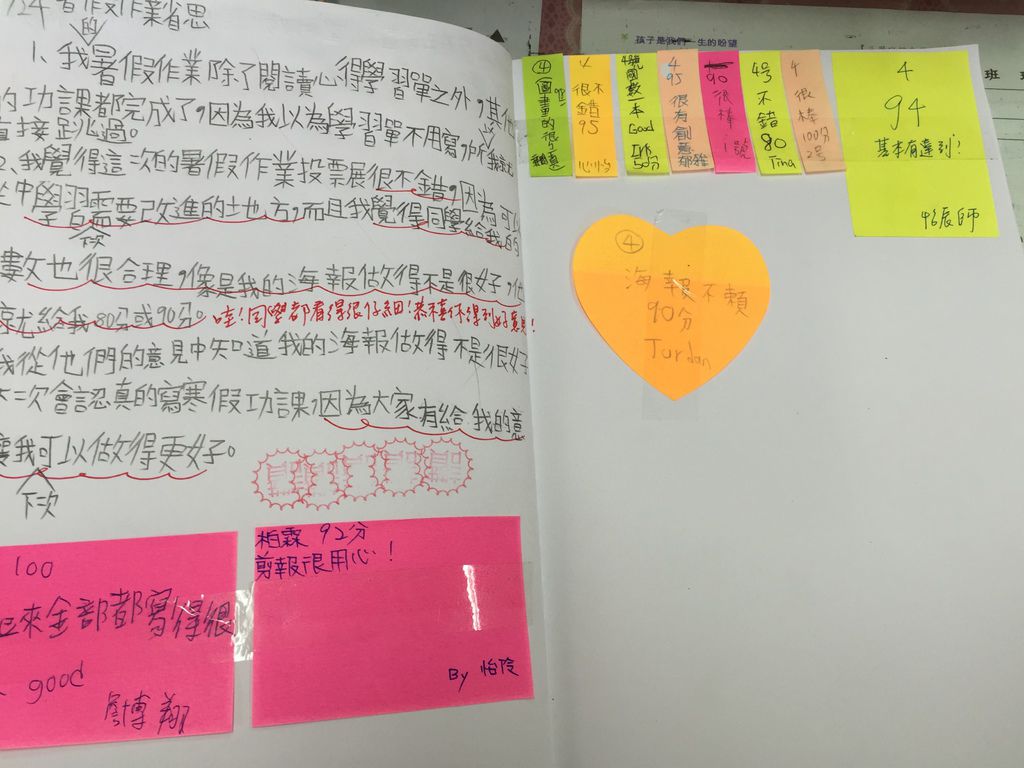 724暑假作業省思
的
1、我暑假作業除了閱讀心得學習單之外,其他
的功課都完成了,因為我以為學習單不用寫
直接跳過。
2、我覺得這次的暑假作業投票展很不錯,因為可以
從中學習需要改進的地方,而且我覺得同學給我的
下次
數也很合理,像是我的海報做得不是很好,他
就給我80分或90分。哇!同學都看得很仔細!恭喜你得到好意見!
我從他們的意見中知道我的海報做得不是很好
下次會認真的寫寒假功課,因為大家有給我的意
讓我可以做得更好。
下次
100
起來全部都寫得很
good
詹博翔
柏霖 92分
剪報很用心!
By 怡伶
孩子是我們一生的盼望
班
④
圖畫的很
很不錯
95
國數一本
Good
4
95
很有創意
90
很棒
1號
4号
不錯
80
Tina
4
很棒
100分
2号
4
94
基本有達到!
怡辰師
④
海報不賴
90分
Jurdan